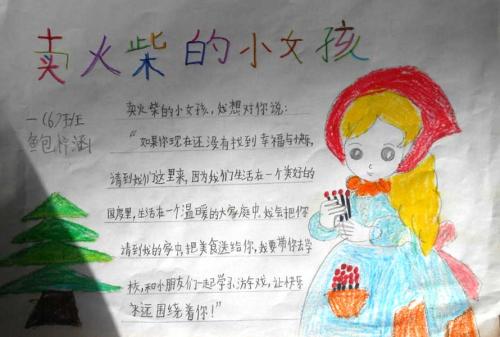 卖火柴的小女孩
一(6)班
鲍柠涵
卖火柴的小女孩,我想对你说:
“如果你现在还没有找到幸福与快乐,
请到我们这里来,因为我们生活在一个美好的
国度里,生活在一个温暖的大家庭中,我会把你
请到我的家中,把美食送给你,我要带你去学
校,和小朋友们一起学习、游戏,让快乐
永远围绕着你!”